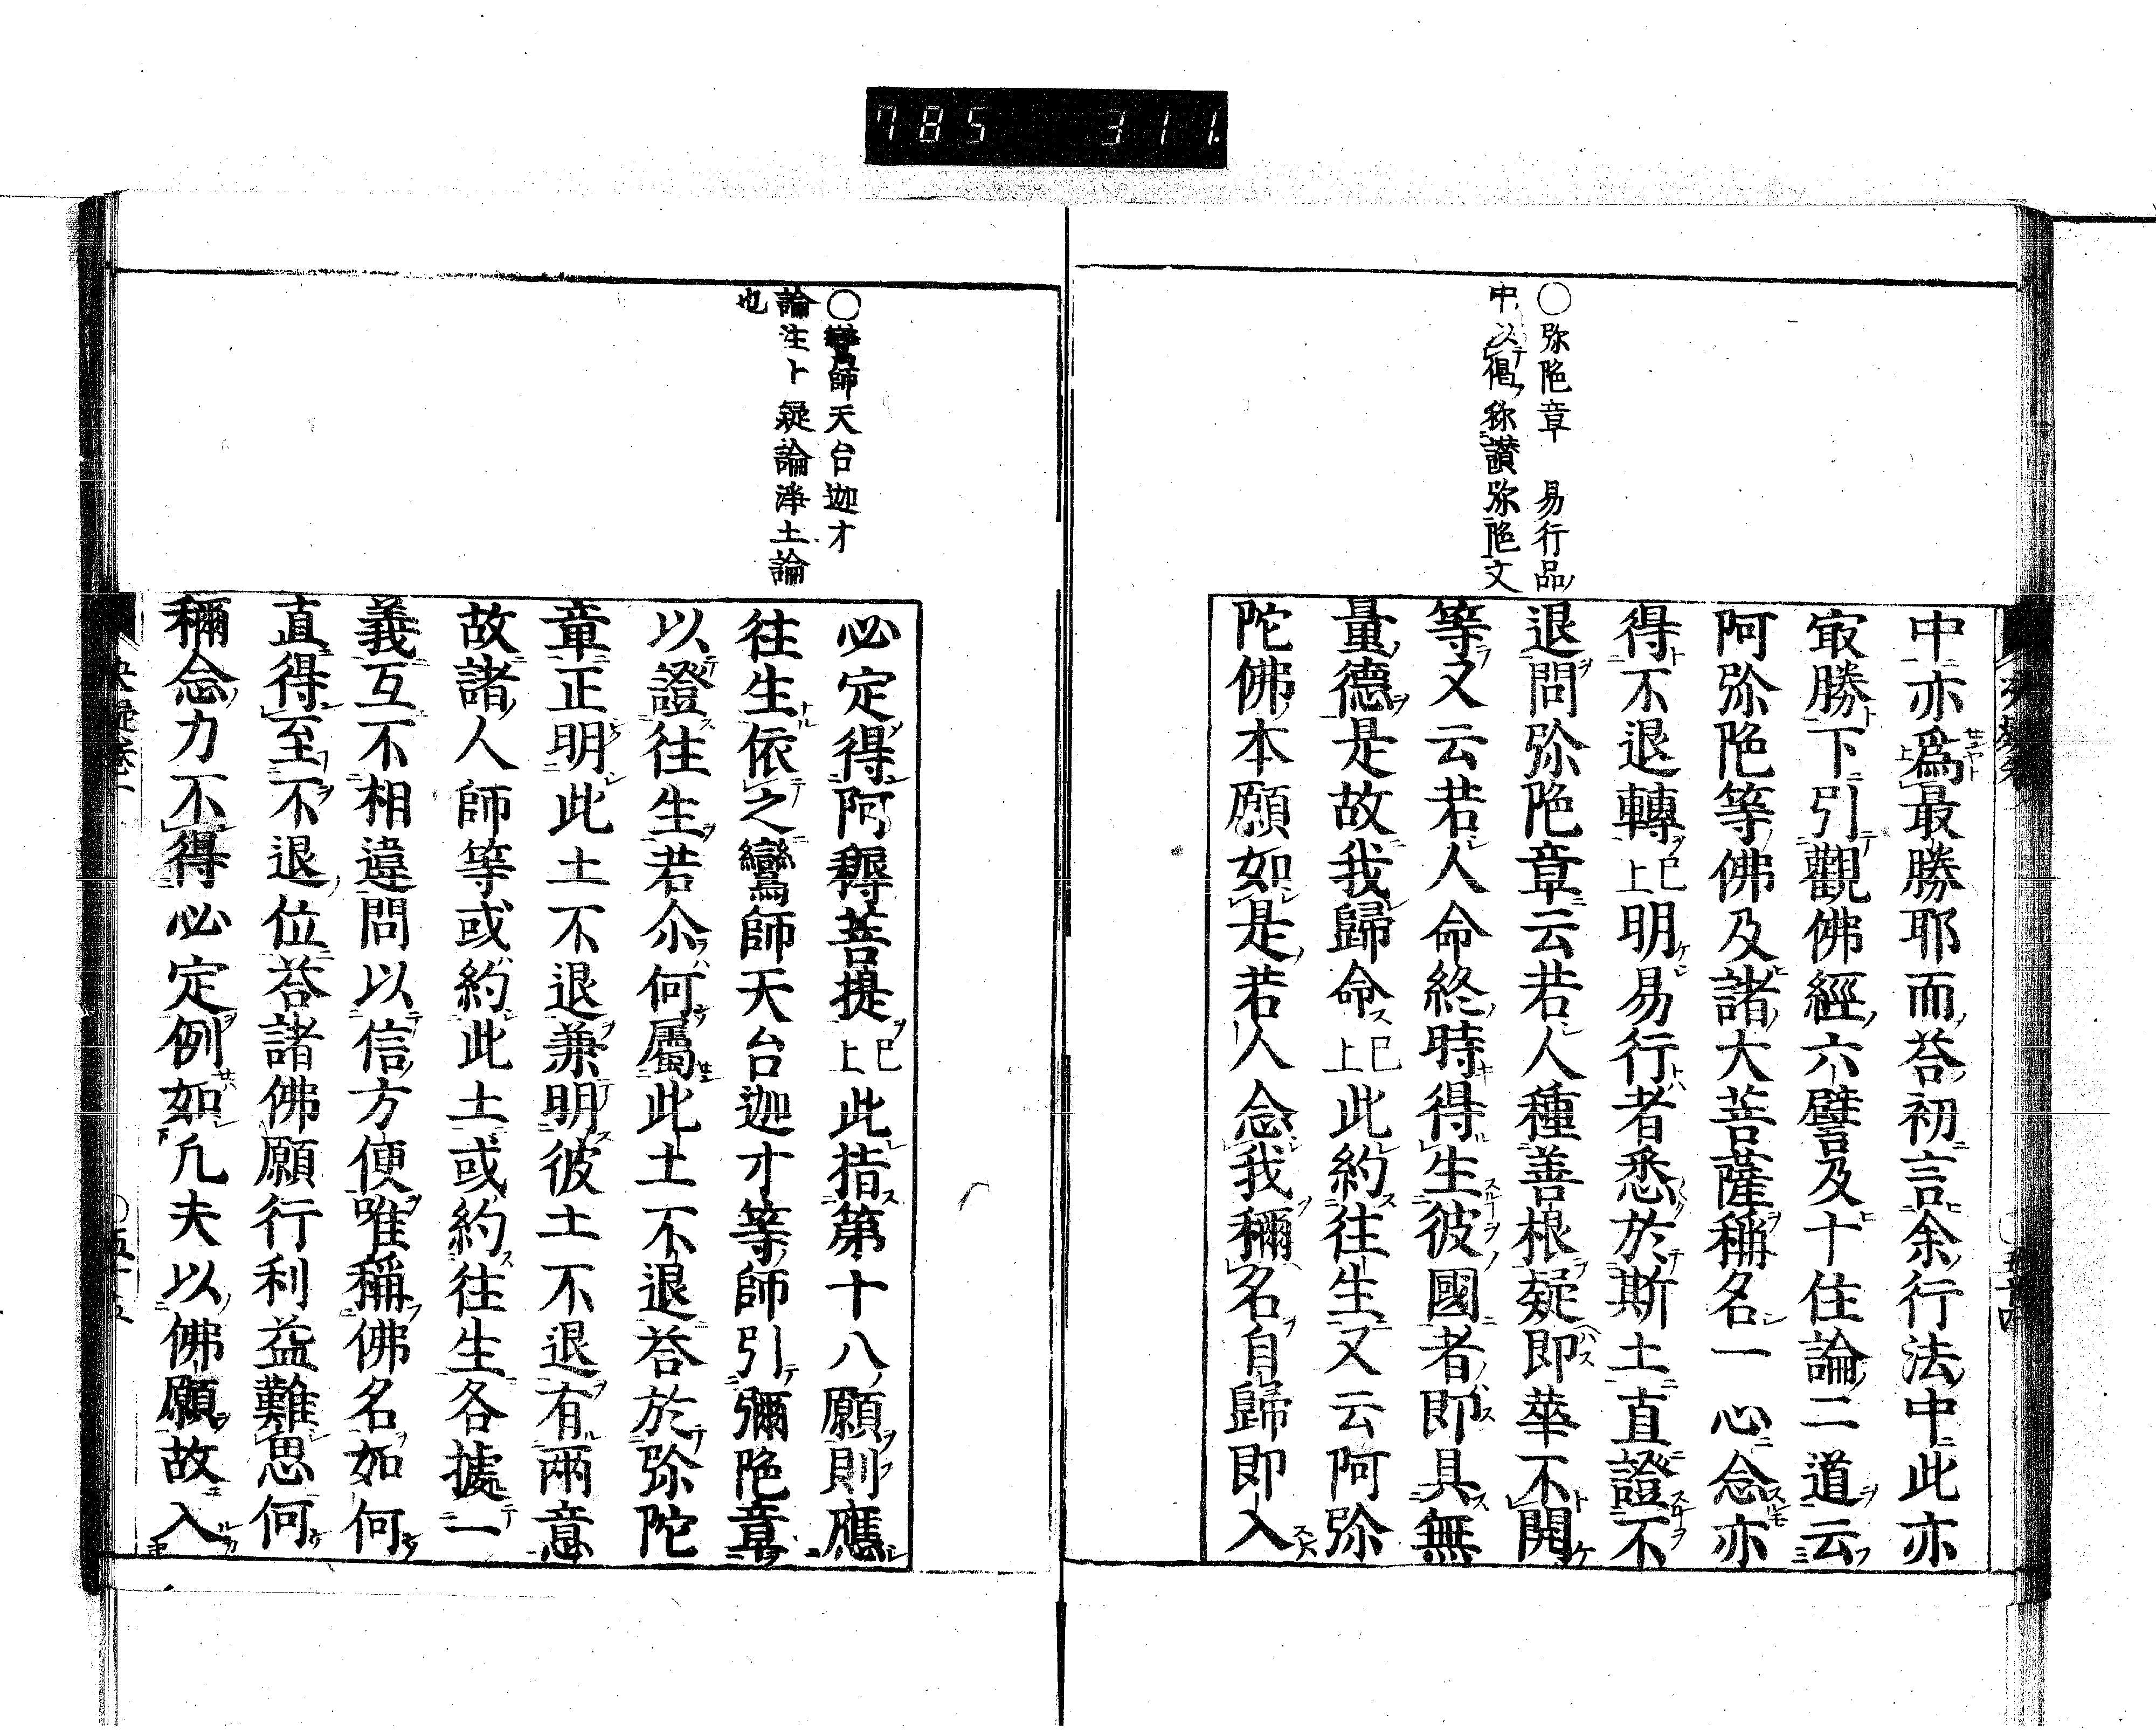 785 311.
○弥陁章 易行品
中以偈称讃弥陁文
中亦爲最勝耶而荅初言余行法中此亦
㝡勝下引觀佛經六譬及十住論二道云
阿弥陁等佛及諸大菩薩稱名一心念亦
得不退轉已上明易行者悉於斯土直證不
退問弥陁章云若人種善根疑即華不開
等又云若人命終時得生彼國者即具無
量德是故我歸命已上此約往生又云阿弥
陀佛本願如是若人念我稱名自歸即入
○鸞師天台迦才
論注十疑論淨土論
也
必定得阿耨菩提已上此指第十八願則應
往生依之鸞師天台迦才等師引彌陁章
以證往生若尒何屬此土不退荅於弥陀
章正明此土不退兼明彼土不退有兩意
故諸人師等或約此土或約往生各據一
義互不相違問以信方便唯稱佛名如何
直得至不退位荅諸佛願行利益難思何
稱念力不得必定例如凢夫以佛願故入